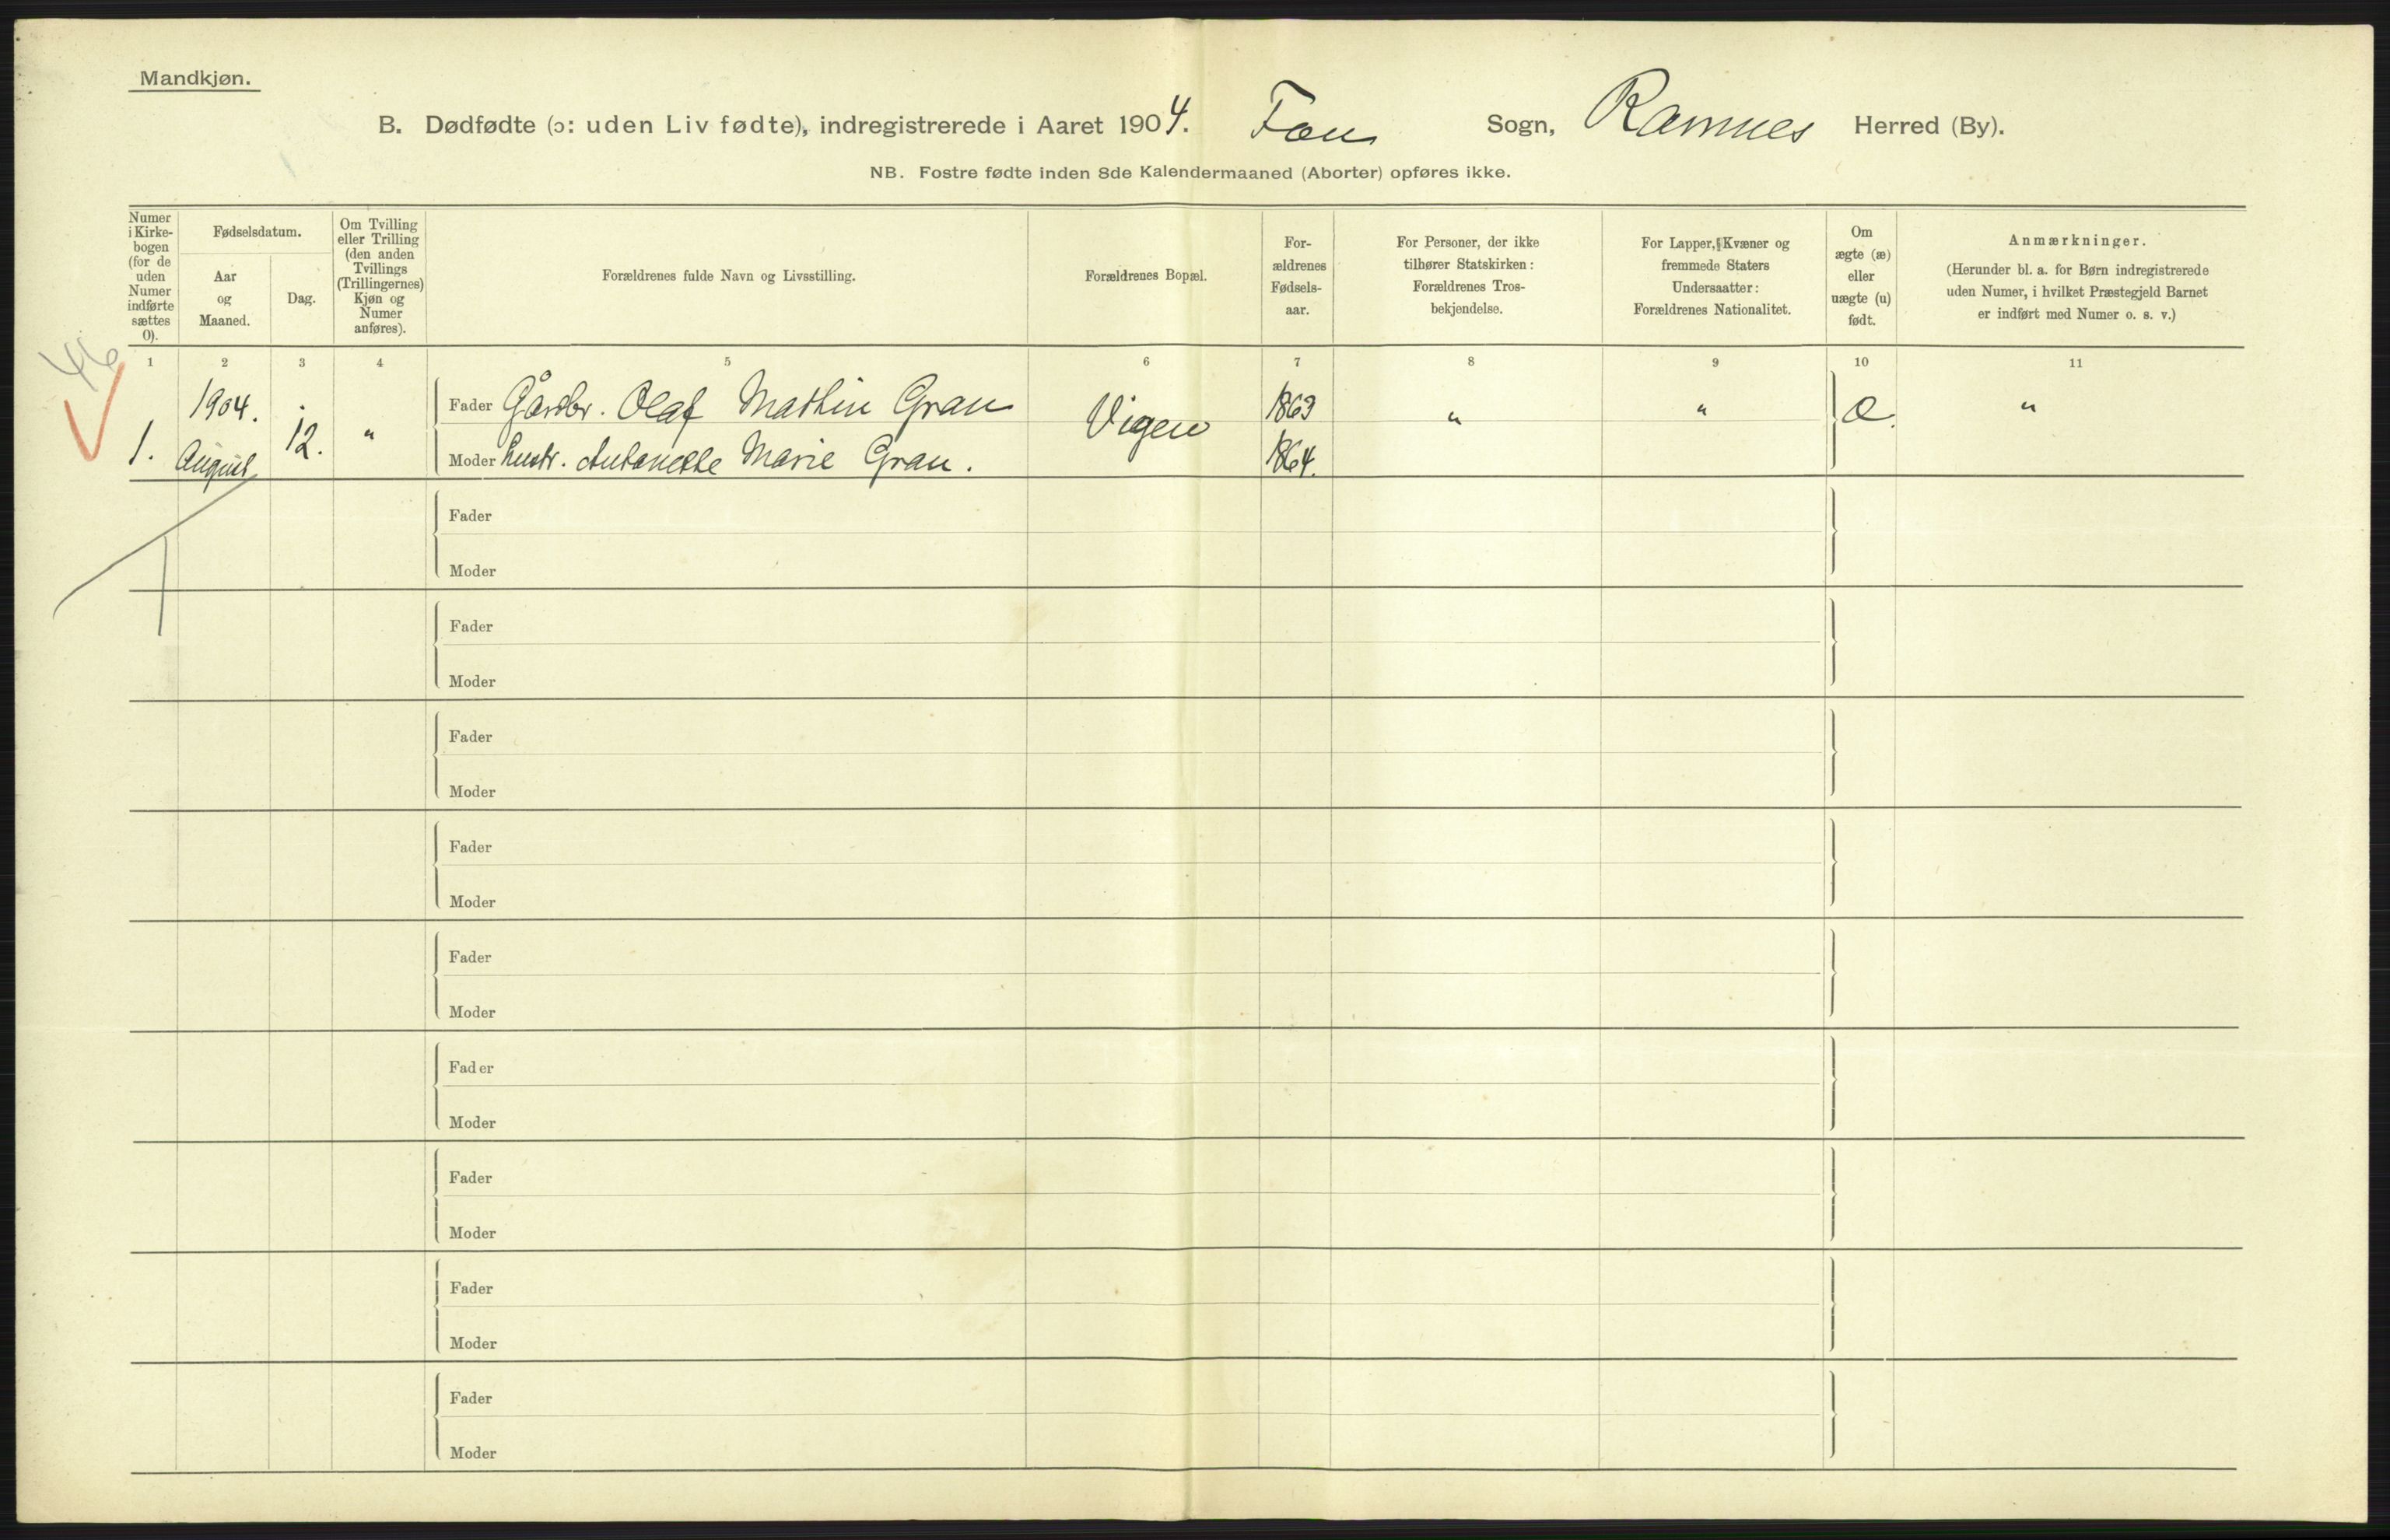 Mandkjøn.
B. Dødfødte (ɔ: uden Liv fødte), indregistrerede i Aaret 1904. Fon Sogn, Ramnes Herred (By).
NB. Fostre fødte inden 8de Kalendermaaned (Aborter) opføres ikke.
Numer i Kirke-bogen (for de uden Numer indførte sættes 0).
Fødselsdatum.
Aar og Maaned.
Dag.
Om Tvilling eller Trilling (den anden Tvillings (Trillingernes) Kjøn og Numer anføres).
Forældrenes fulde Navn og Livsstilling.
Forældrenes Bopæl.
For-ældrenes Fødsels-aar.
For Personer, der ikke tilhører Statskirken: Forældrenes Tros-bekjendelse.
For Lapper, Kvæner og fremmede Staters Undersaatter: Forældrenes Nationalitet.
Om ægte (æ) eller uægte (u) født.
Anmærkninger.
(Herunder bl. a. for Børn indregistrerede uden Numer, i hvilket Præstegjeld Barnet er indført med Numer o. s. v.)
1 2 3 4 5 6 7 8 9 10 11
46
1. 1904. August 12. " Fader Gårdbr. Olaf Mathin Gran Vigen 1863 " " æ. "
Moder hustr. Antonette Marie Gran. 1864.
Fader
Moder
Fader
Moder
Fader
Moder
Fader
Moder
Fader
Moder
Fader
Moder
Fader
Moder
Fader
Moder
Fader
Moder